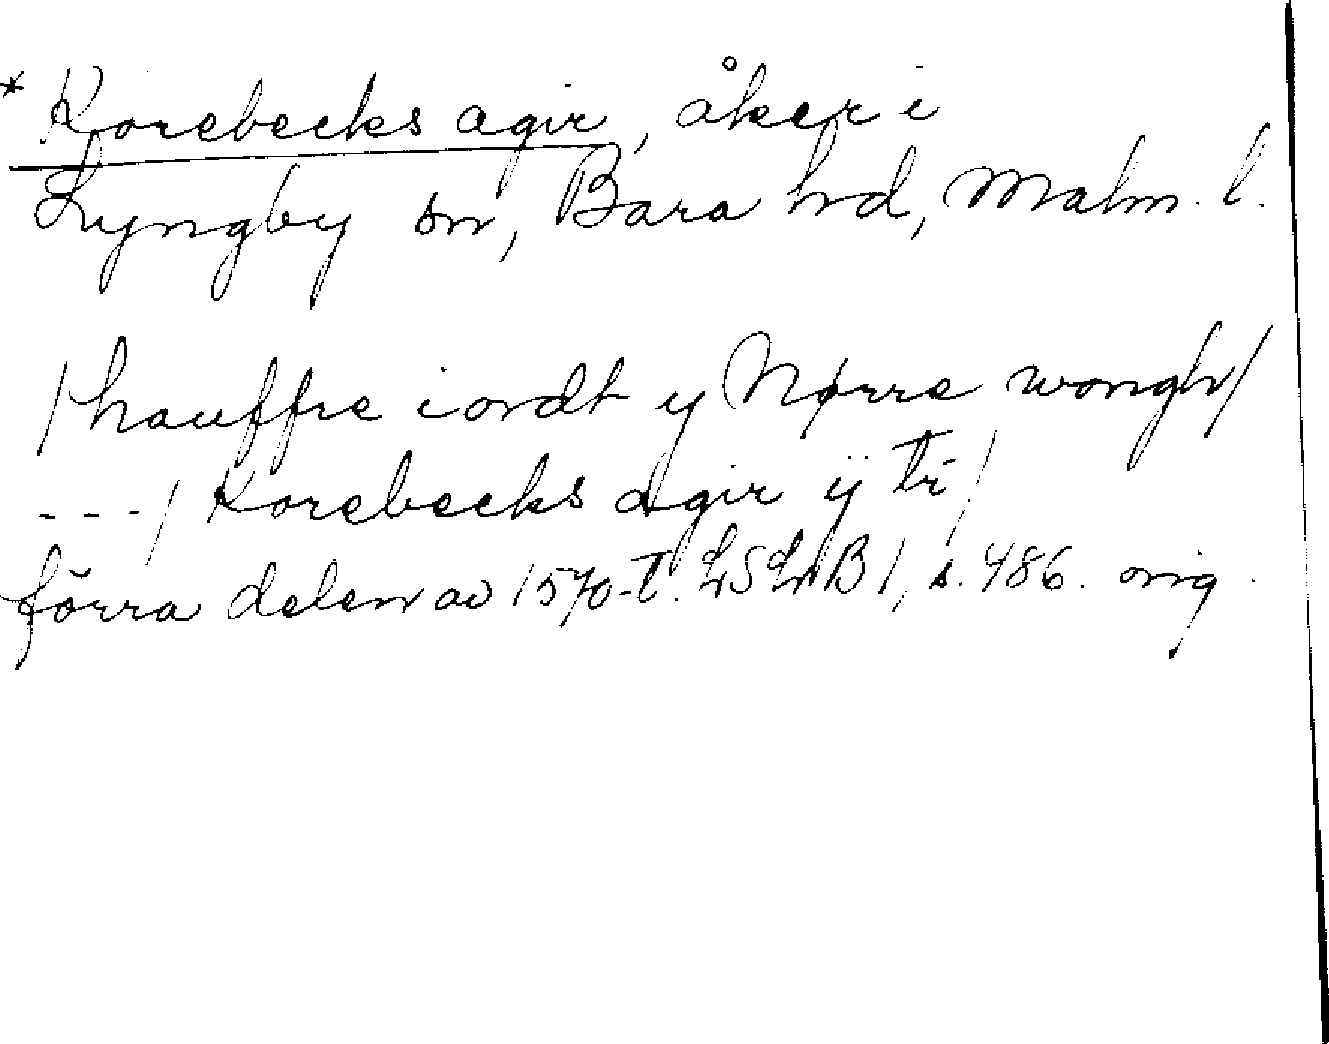 * Korebecks agir, åker i
Lyngby sn, Bara hd, Malm. l.
/ hauffre iordt y Nørre wongh /
--- / Korebecks agir ÿ tr /
förra delen av 1570-t. LSLB 1, s. 486. orig.